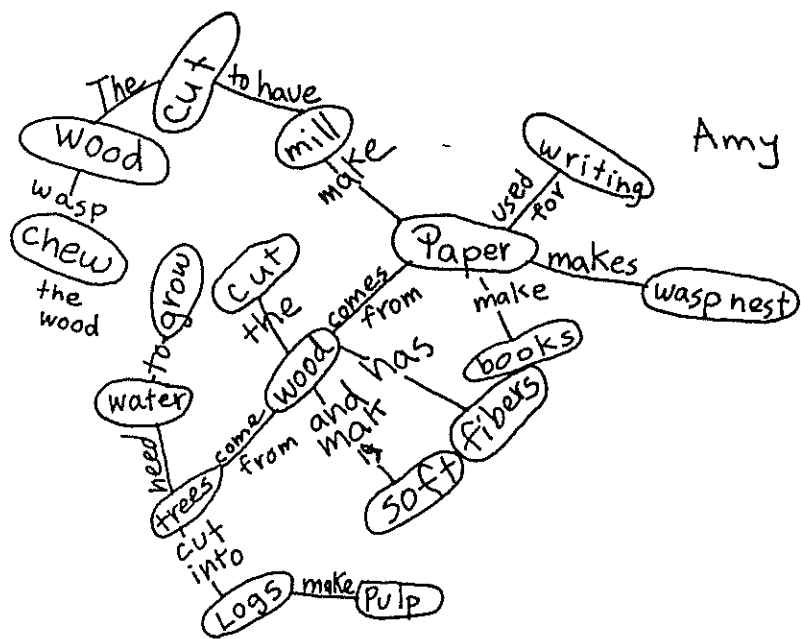 The
cut
to have
mill
make
wood
wasp
chew
the
wood
Amy
writing
used
for
Paper
makes
wasp nest
make
books
comes
from
cut
the
wood
has
fibers
and
mak
is
soft
grow
to
water
need
come
from
trees
cut
into
Logs
make
Pulp